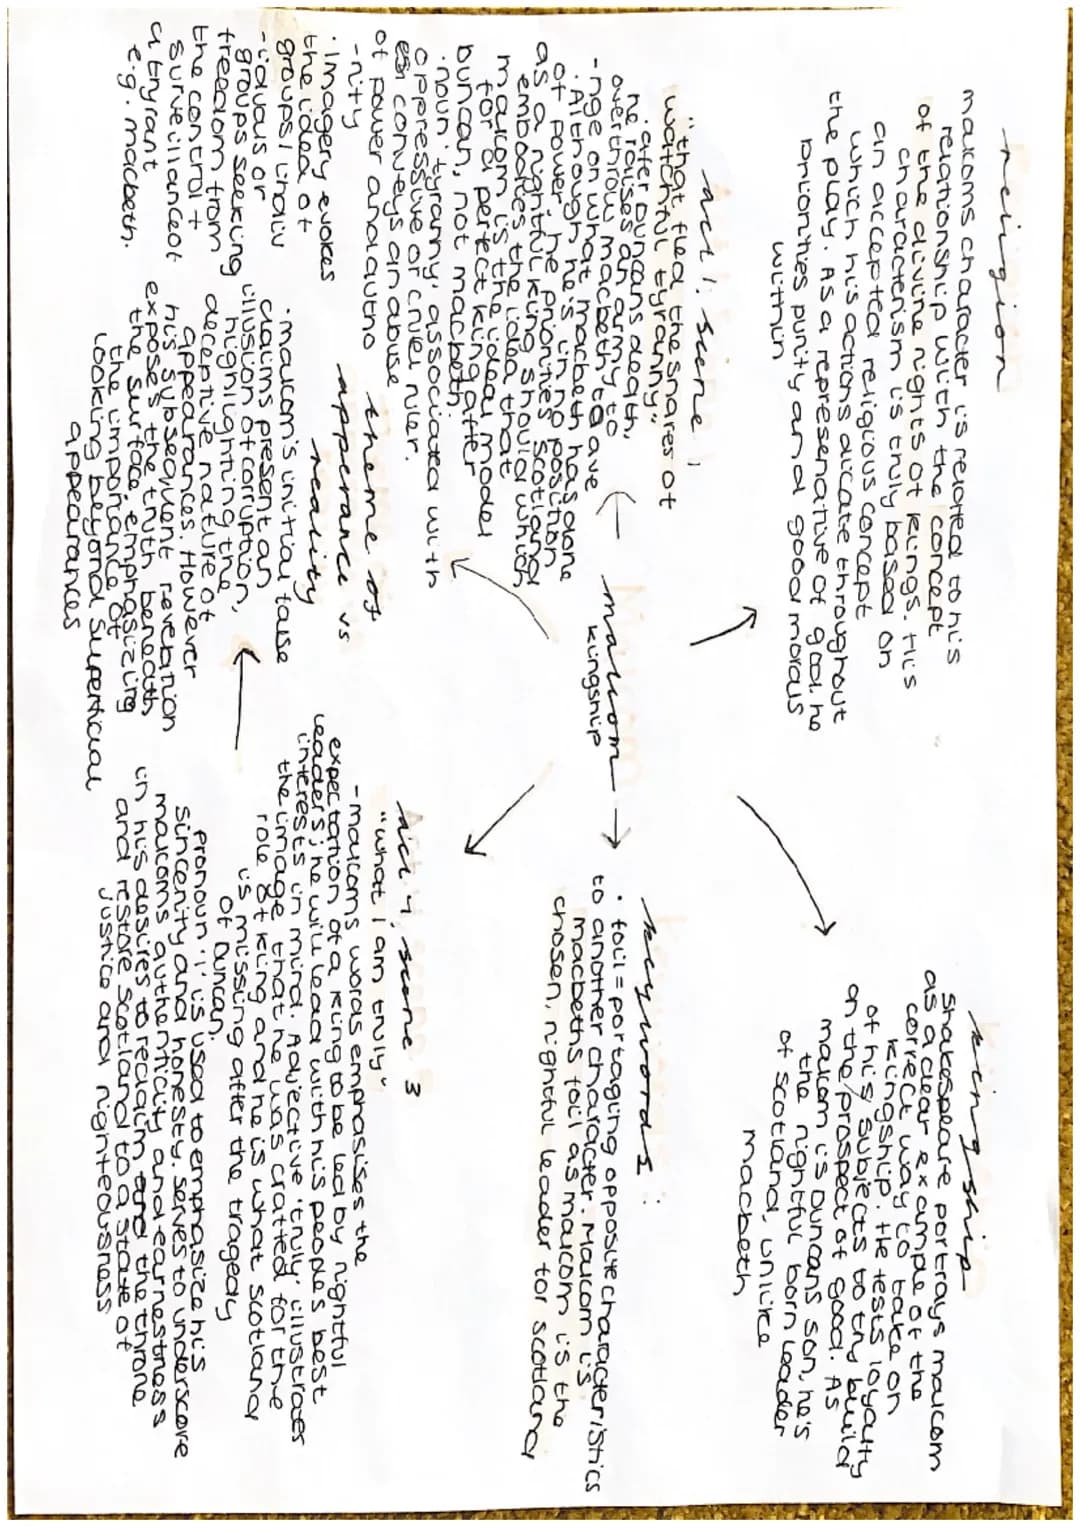 religion
malcoms character is related to his
relationship with the concept
of the divine rights of kings. His
characterism is truly based on
an accepted religious concept
which his actions dicate throughout
the play. As a represenative of god. he
priorities purity and good morals
within
kingship
Shakespeare portrays malcom
as a clear example of the
correct way to take on
kingship. He tests loyalty
of his subjects to try build
on the prospect of good. As
malcom is Duncans son, he's
the rightful born leader
of scotland, unlike
macbeth
act 1: scene 1;
"that fled the snares of
watchful tyranny"
· after Duncans death,
he raises an army to
overthrow macbeth to ave
-nge on what macbeth has done
· Although he's in no position
of power, he priorities scotland
as a rightful king should which
embodies the idea that
malcom is the ideal model
for a perfect king after
Duncan, not macbeth.
· noun 'tyranny' associated with
oppressive or cruel ruler.
conveys an abuse
of power and autho
-rity
· Imagery evokes
the idea of
groups / indiv
-iduals or
groups seeking
freedom from
the control +
surveillance of
a tryrant
e.g. macbeth.
malcom
kingship
keywords:
· foil = portaging opposite characteristics
to another character. Malcom is
macbeths foil as malcom is the
chosen, rightful leader for scotland
theme of
apperance vs
reality
· malcom's initial false
claims present an
illusion of corruption,
highlighting the
deceptive nature of
appearances. However
his subsequent revelation
exposes the truth beneath
the surface, emphasizing
the importance of
looking beyond superficial
appearances
Act 4, scene 3
"what I am truly"
- malcoms words emphasises the
expectation of a king to be led by rightful
leaders; he will lead with his peoples best
interests in mind. Adjective 'truly' illustrates
the image that he was crafted for the
role of king and he is what scotland
is missing after the tragedy
of Duncan.
pronoun 'I' is used to emphasize his
sincerity and honesty. serves to underscore
malcoms authenticity and earnestness
in his desires to reclaim the throne
and restore Scotland to a state of
justice and righteousness